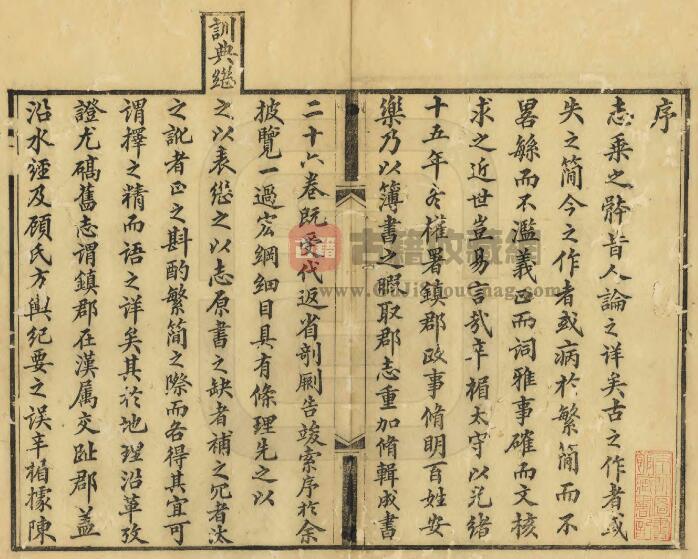 序
志乗之骵昔人論之详矣古之作者或
失之简今之作者或病於繁简而不
畧緐而不濫義正而詞雅事確而文核
求之近世豈易言哉辛楣太守以光緒
十五年冬權署鎮郡政事脩明百姓安
樂乃以簿書之暇取郡志重加脩輯成書
二十六卷既受代返省剞劂告竣索序於余
披覽一過宏綱細目具有條理先之以
訓典繼
之以表繼之以志原書之缺者補之冗者汰
之訛者正之斟酌繁簡之際而各得其宜可
謂擇之精而語之详矣其於地理沿革攷
證尤碻舊志謂鎮郡在漢属交趾郡蓋
沿水經及顧氏方輿紀要之误辛楣據陳
古籍
古籍收藏網